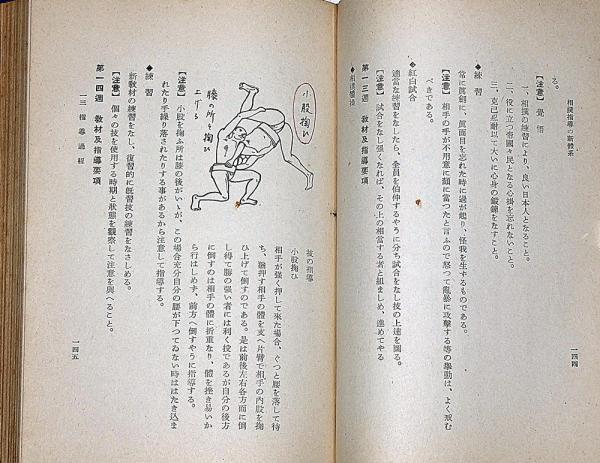 相撲指導の新體系
る。
【注意】覺悟
一、相撲の練習により、良い日本人となること。
二、役に立つ帝國ノ民となる心掛を忘れないこと。
三、克己忍耐以て大いに心身の鍛錬をなすこと。
◆練習
常に眞劍に、眞面目を忘れた時に過が起り、怪我を生ずるものである。
【注意】相手の手が不用意に顔に當つたと言ふので怒つて亂暴に攻擊する等の擧動は、よく戒む
べきである。
◆紅白試合
適當な練習をなしたら、全員を伯仲するやうに分ち試合をなし技の上達を圖る。
【注意】試合をなし强くなれば、その上の相當する者と組ましめ、進めてやる
第一三週 敎材及指導要項
◆相撲體操
一四四
技の指導
小股掬ひ
相手が强く押して來た場合、ぐつと腰を落して待
ち、强押す相手の體を支へ片臂で相手の內股を掬
ひ上げて倒すのである。是は前後左右各方面に倒
し得て腰の强い者には利く投であるが自分の後方
に倒すのは相手の體に折重なり、體を挫き易いか
ら行はしめず、前方へ倒すやうに指導する。
小股掬ひ
膝の所を掬ひ
上げる
【注意】小股を掬ふ所は膝の後がいゝが、この場合充分自分の腰が下つてゐない時ははたき込ま
れたり手繰り落されたりする事があるから注意して指導する。
◆練習
新敎材の練習をなし、復習的に旣習技の練習をなさしめる。
【注意】個々の技を使用する時期と狀態を觀察して注意を與へること。
第一四週 敎材及指導要項
一三 指導過程
一四五